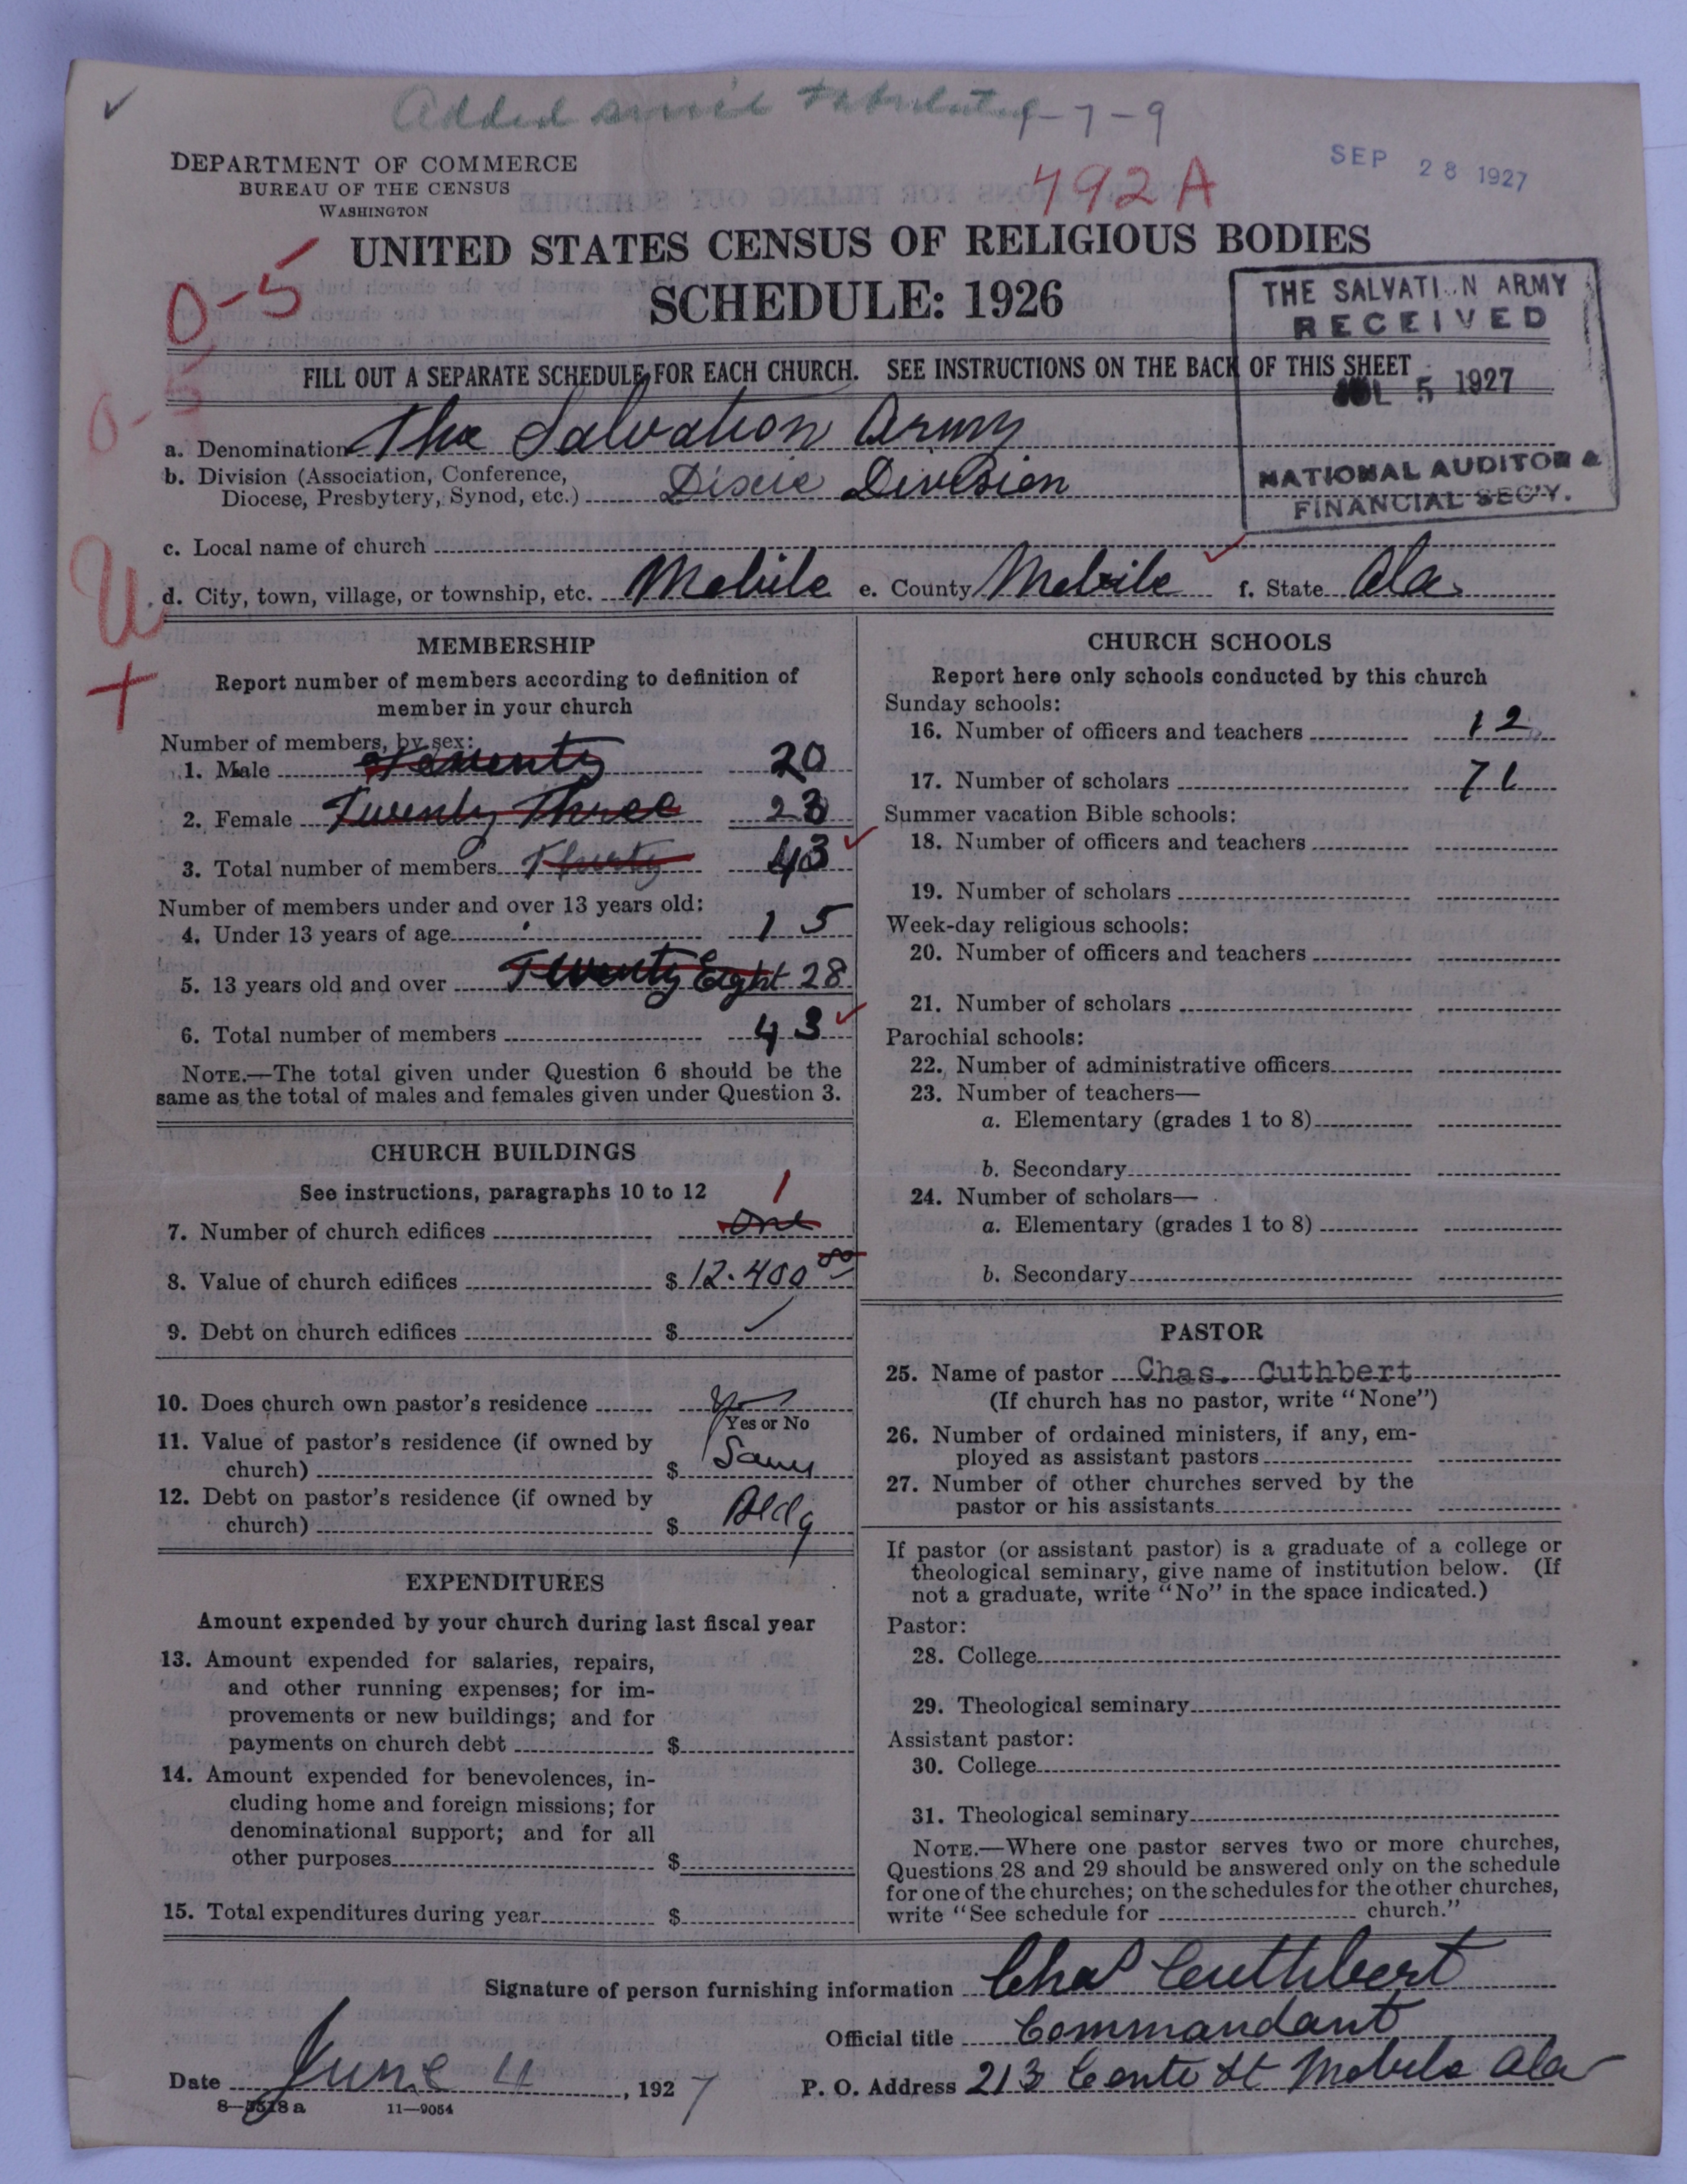 Added since tabulated 9-7-9
DEPARTMENT OF COMMERCE
BUREAU OF THE CENSUS
WASHINGTON
492A
SEP 28 1927
UNITED STATES CENSUS OF RELIGIOUS BODIES
SCHEDULE: 1926
0-5
0-5
THE SALVATI N ARMY
RECEIVED
JUL 5 1927
NATIONAL AUDITOR &
FINANCIAL SEC'Y.
FILL OUT A SEPARATE SCHEDULE FOR EACH CHURCH. SEE INSTRUCTIONS ON THE BACK OF THIS SHEET
a. Denomination The Salvation Army
b. Division (Association, Conference,
Diocese, Presbytery, Synod, etc.) Dixie Division
c. Local name of church
U
d. City, town, village, or township, etc. Mobile e. County Mobile f. State Ala.
MEMBERSHIP
Report number of members according to definition of
member in your church
Number of members, by sex:
1. Male Twenty 20
2. Female Twenty Three 23
3. Total number of members 43
Number of members under and over 13 years old:
4. Under 13 years of age 15
5. 13 years old and over Twenty Eight 28
6. Total number of members 43
NOTE.—The total given under Question 6 should be the
same as the total of males and females given under Question 3.
CHURCH BUILDINGS
See instructions, paragraphs 10 to 12
1
7. Number of church edifices one
8. Value of church edifices $ 12.400 00
9. Debt on church edifices $
10. Does church own pastor's residence yes
Yes or No
11. Value of pastor's residence (if owned by
church) $ Same
12. Debt on pastor's residence (if owned by
church) $ Bldg
EXPENDITURES
Amount expended by your church during last fiscal year
13. Amount expended for salaries, repairs,
and other running expenses; for im-
provements or new buildings; and for
payments on church debt $
14. Amount expended for benevolences, in-
cluding home and foreign missions; for
denominational support; and for all
other purposes $
15. Total expenditures during year $
CHURCH SCHOOLS
Report here only schools conducted by this church
Sunday schools:
16. Number of officers and teachers 12
17. Number of scholars
Summer vacation Bible schools:
18. Number of officers and teachers
19. Number of scholars
Week-day religious schools:
20. Number of officers and teachers
21. Number of scholars
Parochial schools:
22. Number of administrative officers
23. Number of teachers—
a. Elementary (grades 1 to 8)
b. Secondary
24. Number of scholars—
a. Elementary (grades 1 to 8)
b. Secondary
PASTOR
25. Name of pastor Chas. Cuthbert
(If church has no pastor, write "None")
26. Number of ordained ministers, if any, em-
ployed as assistant pastors
27. Number of other churches served by the
pastor or his assistants
If pastor (or assistant pastor) is a graduate of a college or
theological seminary, give name of institution below. (If
not a graduate, write "No" in the space indicated.)
Pastor:
28. College
29. Theological seminary
Assistant pastor:
30. College
31. Theological seminary
NOTE.—Where one pastor serves two or more churches,
Questions 28 and 29 should be answered only on the schedule
for one of the churches; on the schedules for the other churches,
write "See schedule for church."
Signature of person furnishing information Chas Cuthbert
Official title Commandant
Date June 4, 1927 P. O. Address 213 Conti St Mobile Ala
8—5518a 11—9054